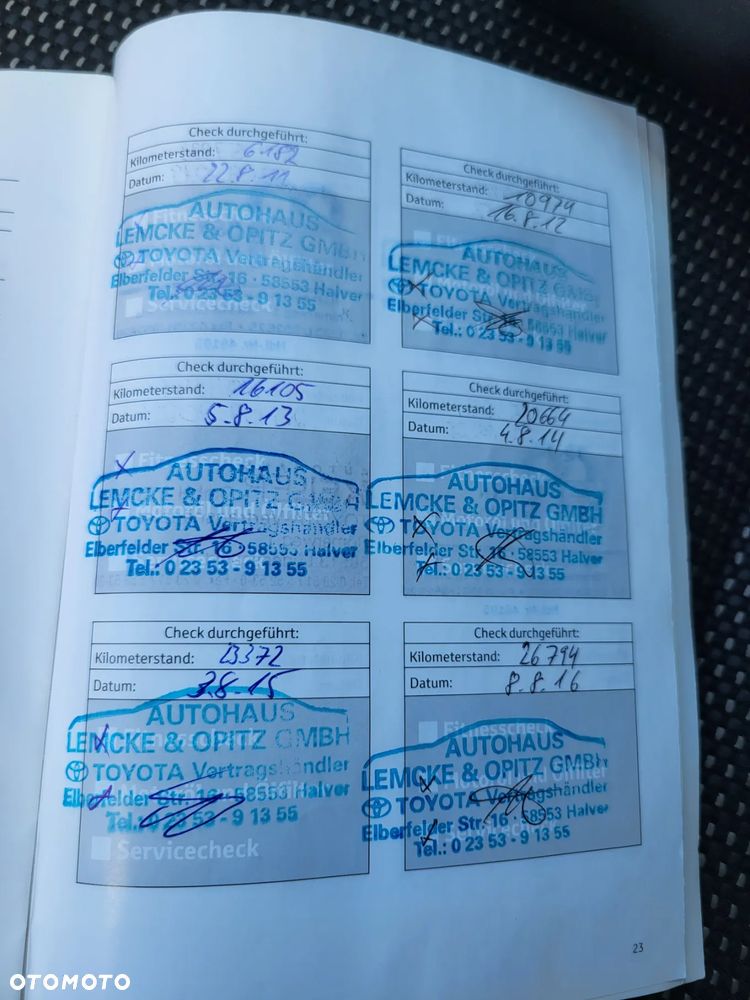 Check durchgeführt:
Kilometerstand: 6182
Datum: 22.8.11
AUTOHAUS
LEMCKE & OPITZ GMBH
TOYOTA Vertragshändler
Elberfelder Str. 16 · 58553 Halver
Tel.: 0 23 53 - 9 13 55
Servicecheck
Check durchgeführt:
Kilometerstand: 10974
Datum: 16.8.12
AUTOHAUS
LEMCKE & OPITZ GMBH
TOYOTA Vertragshändler
Elberfelder Str. 16 · 58553 Halver
Tel.: 0 23 53 - 9 13 55
Check durchgeführt:
Kilometerstand: 16105
Datum: 5.8.13
Fitnesscheck
AUTOHAUS
LEMCKE & OPITZ GMBH
TOYOTA Vertragshändler
Elberfelder Str. 16 · 58553 Halver
Tel.: 0 23 53 - 9 13 55
Check durchgeführt:
Kilometerstand: 20664
Datum: 4.8.14
AUTOHAUS
LEMCKE & OPITZ GMBH
TOYOTA Vertragshändler
Elberfelder Str. 16 · 58553 Halver
Tel.: 0 23 53 - 9 13 55
Check durchgeführt:
Kilometerstand: 23372
Datum: 3.8.15
AUTOHAUS
LEMCKE & OPITZ GMBH
TOYOTA Vertragshändler
Elberfelder Str. 16 · 58553 Halver
Tel.: 0 23 53 - 9 13 55
Servicecheck
Check durchgeführt:
Kilometerstand: 26794
Datum: 8.8.16
Fitnesscheck
AUTOHAUS
LEMCKE & OPITZ GMBH
Motoröl und Ölfilter
TOYOTA Vertragshändler
Elberfelder Str. 16 · 58553 Halver
Tel.: 0 23 53 - 9 13 55
23
OTOMOTO